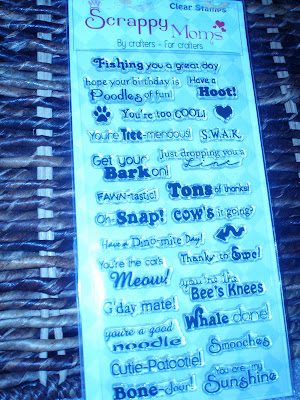 Clear Stamps
Scrappy Moms
By crafters - For crafters
Fishing you a great day
hope your birthday is
Poodles of fun!
Have a
Hoot!
You're too COOL!
You're Tree-mendous!
S.W.A.K.
Get your
Bark on!
Just dropping you a
Line
FAWN-tastic!
Tons of thanks!
Oh Snap!
COW's it going?
Have a Dino-mite Day!
You're the cat's
Meow!
Thanks to Ewe!
you're the
Bee's Knees
G'day mate!
Whale done!
you're a good
noodle
Smooches
Cutie-Patootie!
You are my
Sunshine
Bone-Jour!